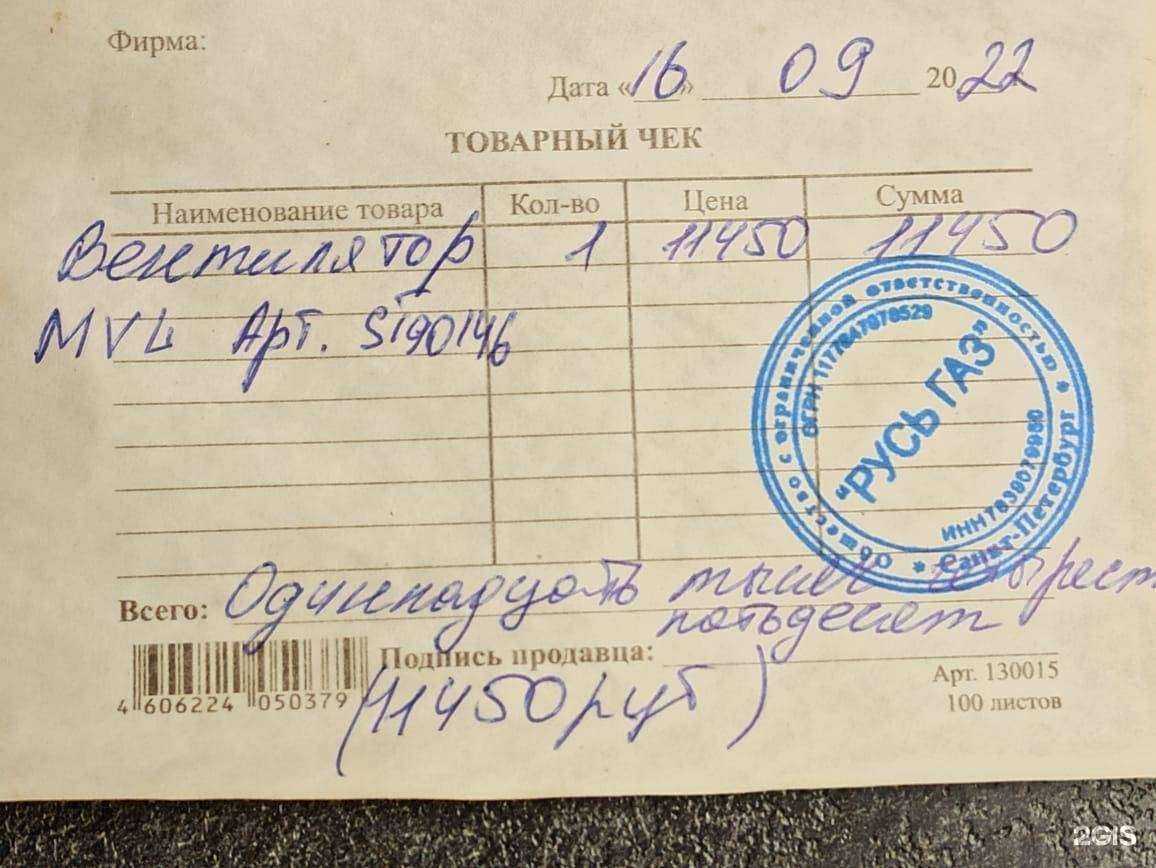 Фирма:
Дата «16» 09 2022
ТОВАРНЫЙ ЧЕК
Наименование товара Кол-во Цена Сумма
Вентилятор 1 11450 11450
MVL Арт. SI90146
Общество с ограниченной ответственностью * Санкт-Петербург *
ОГРН 1177847079529
"РУСЬ ГАЗ"
ИНН7839079980
Всего: Одиннадцать тысяч четырест
пятьдесят
Подпись продавца:
(11450 руб)
4 606224 050379
Арт. 130015
100 листов
2GIS